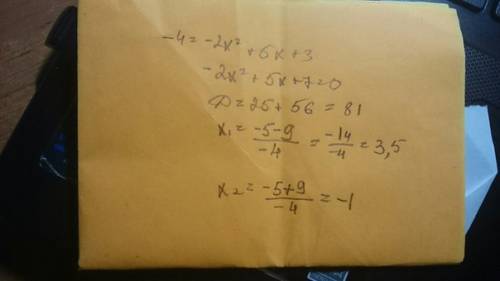 -4 = -2x² + 5x + 3
-2x² + 5x + 7 = 0
D = 25 + 56 = 81
x₁ = \frac{-5-9}{-4} = \frac{-14}{-4} = 3,5
x₂ = \frac{-5+9}{-4} = -1